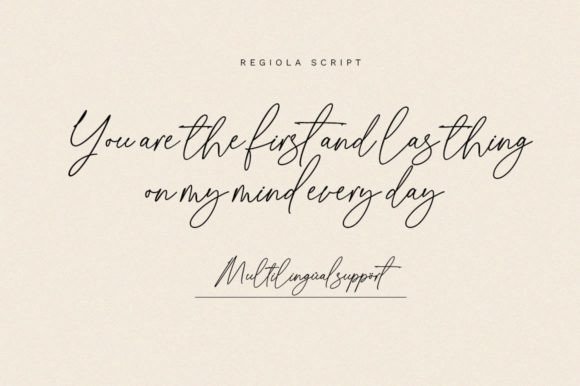 REGIOLA SCRIPT
You are the first and last thing
on my mind every day
Multilingùal suppört